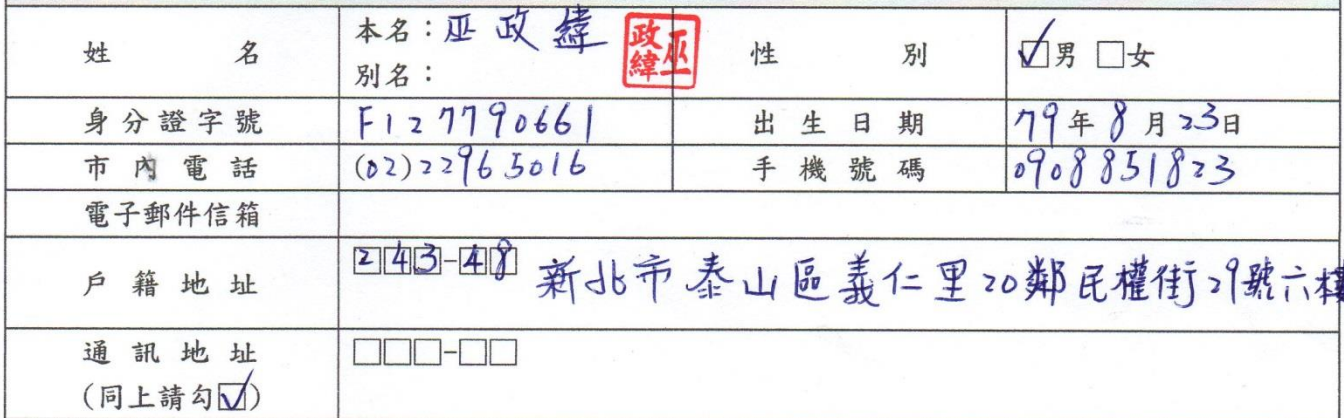 姓名 本名：巫政緯 政緯巫 性別 ☑男 □女
別名：
身分證字號 F127790661 出生日期 79年8月23日
市內電話 (02)22965016 手機號碼 0908851823
電子郵件信箱
戶籍地址 243-48 新北市泰山區義仁里20鄰民權街29號六樓
通訊地址 □□□-□□
(同上請勾☑)